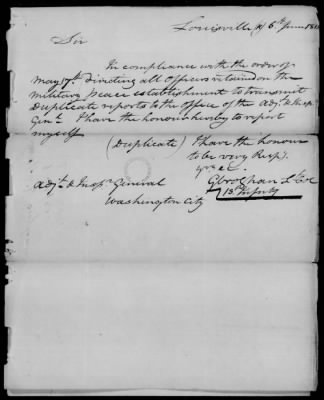 Louisville Ky 6th June 1815
Sir
In compliance with the order of
May 17th directing all Officers retained on the
military peace establishment to transmit
Duplicate reports to the office of the Adjt & Insp
Genl I have the honour hereby to report
myself
(Duplicate) I have the honour
to be very Resp.
yr &c
Adjt & Inspr General G Croghan Lt Col
Washington City 1st Infantry